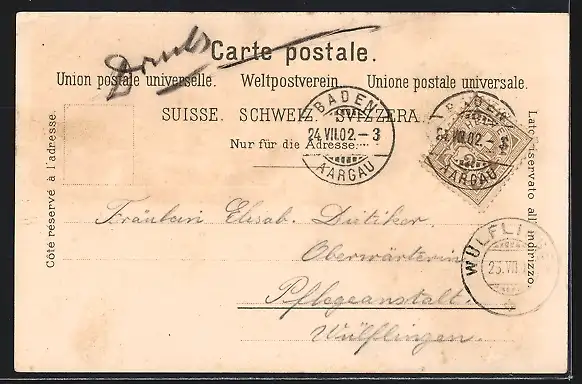 Drucks
Carte postale.
Union postale universelle. Weltpostverein. Unione postale universale.
SUISSE. SCHWEIZ. SVIZZERA.
Nur für die Adresse.
Côté réservé à l'adresse.
Lato riservato all' indirizzo.
BADEN
24.VII.02.-3
AARGAU
BADEN
24.VII.02.-3
AARGAU
WÜLFLI
23.VII
Fräulein Elisab. Dutiker.
Oberwärterin
Pflegeanstalt.
Wülflingen.